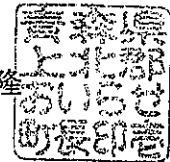 隆
青森県
上北郡
おいらせ
町長印